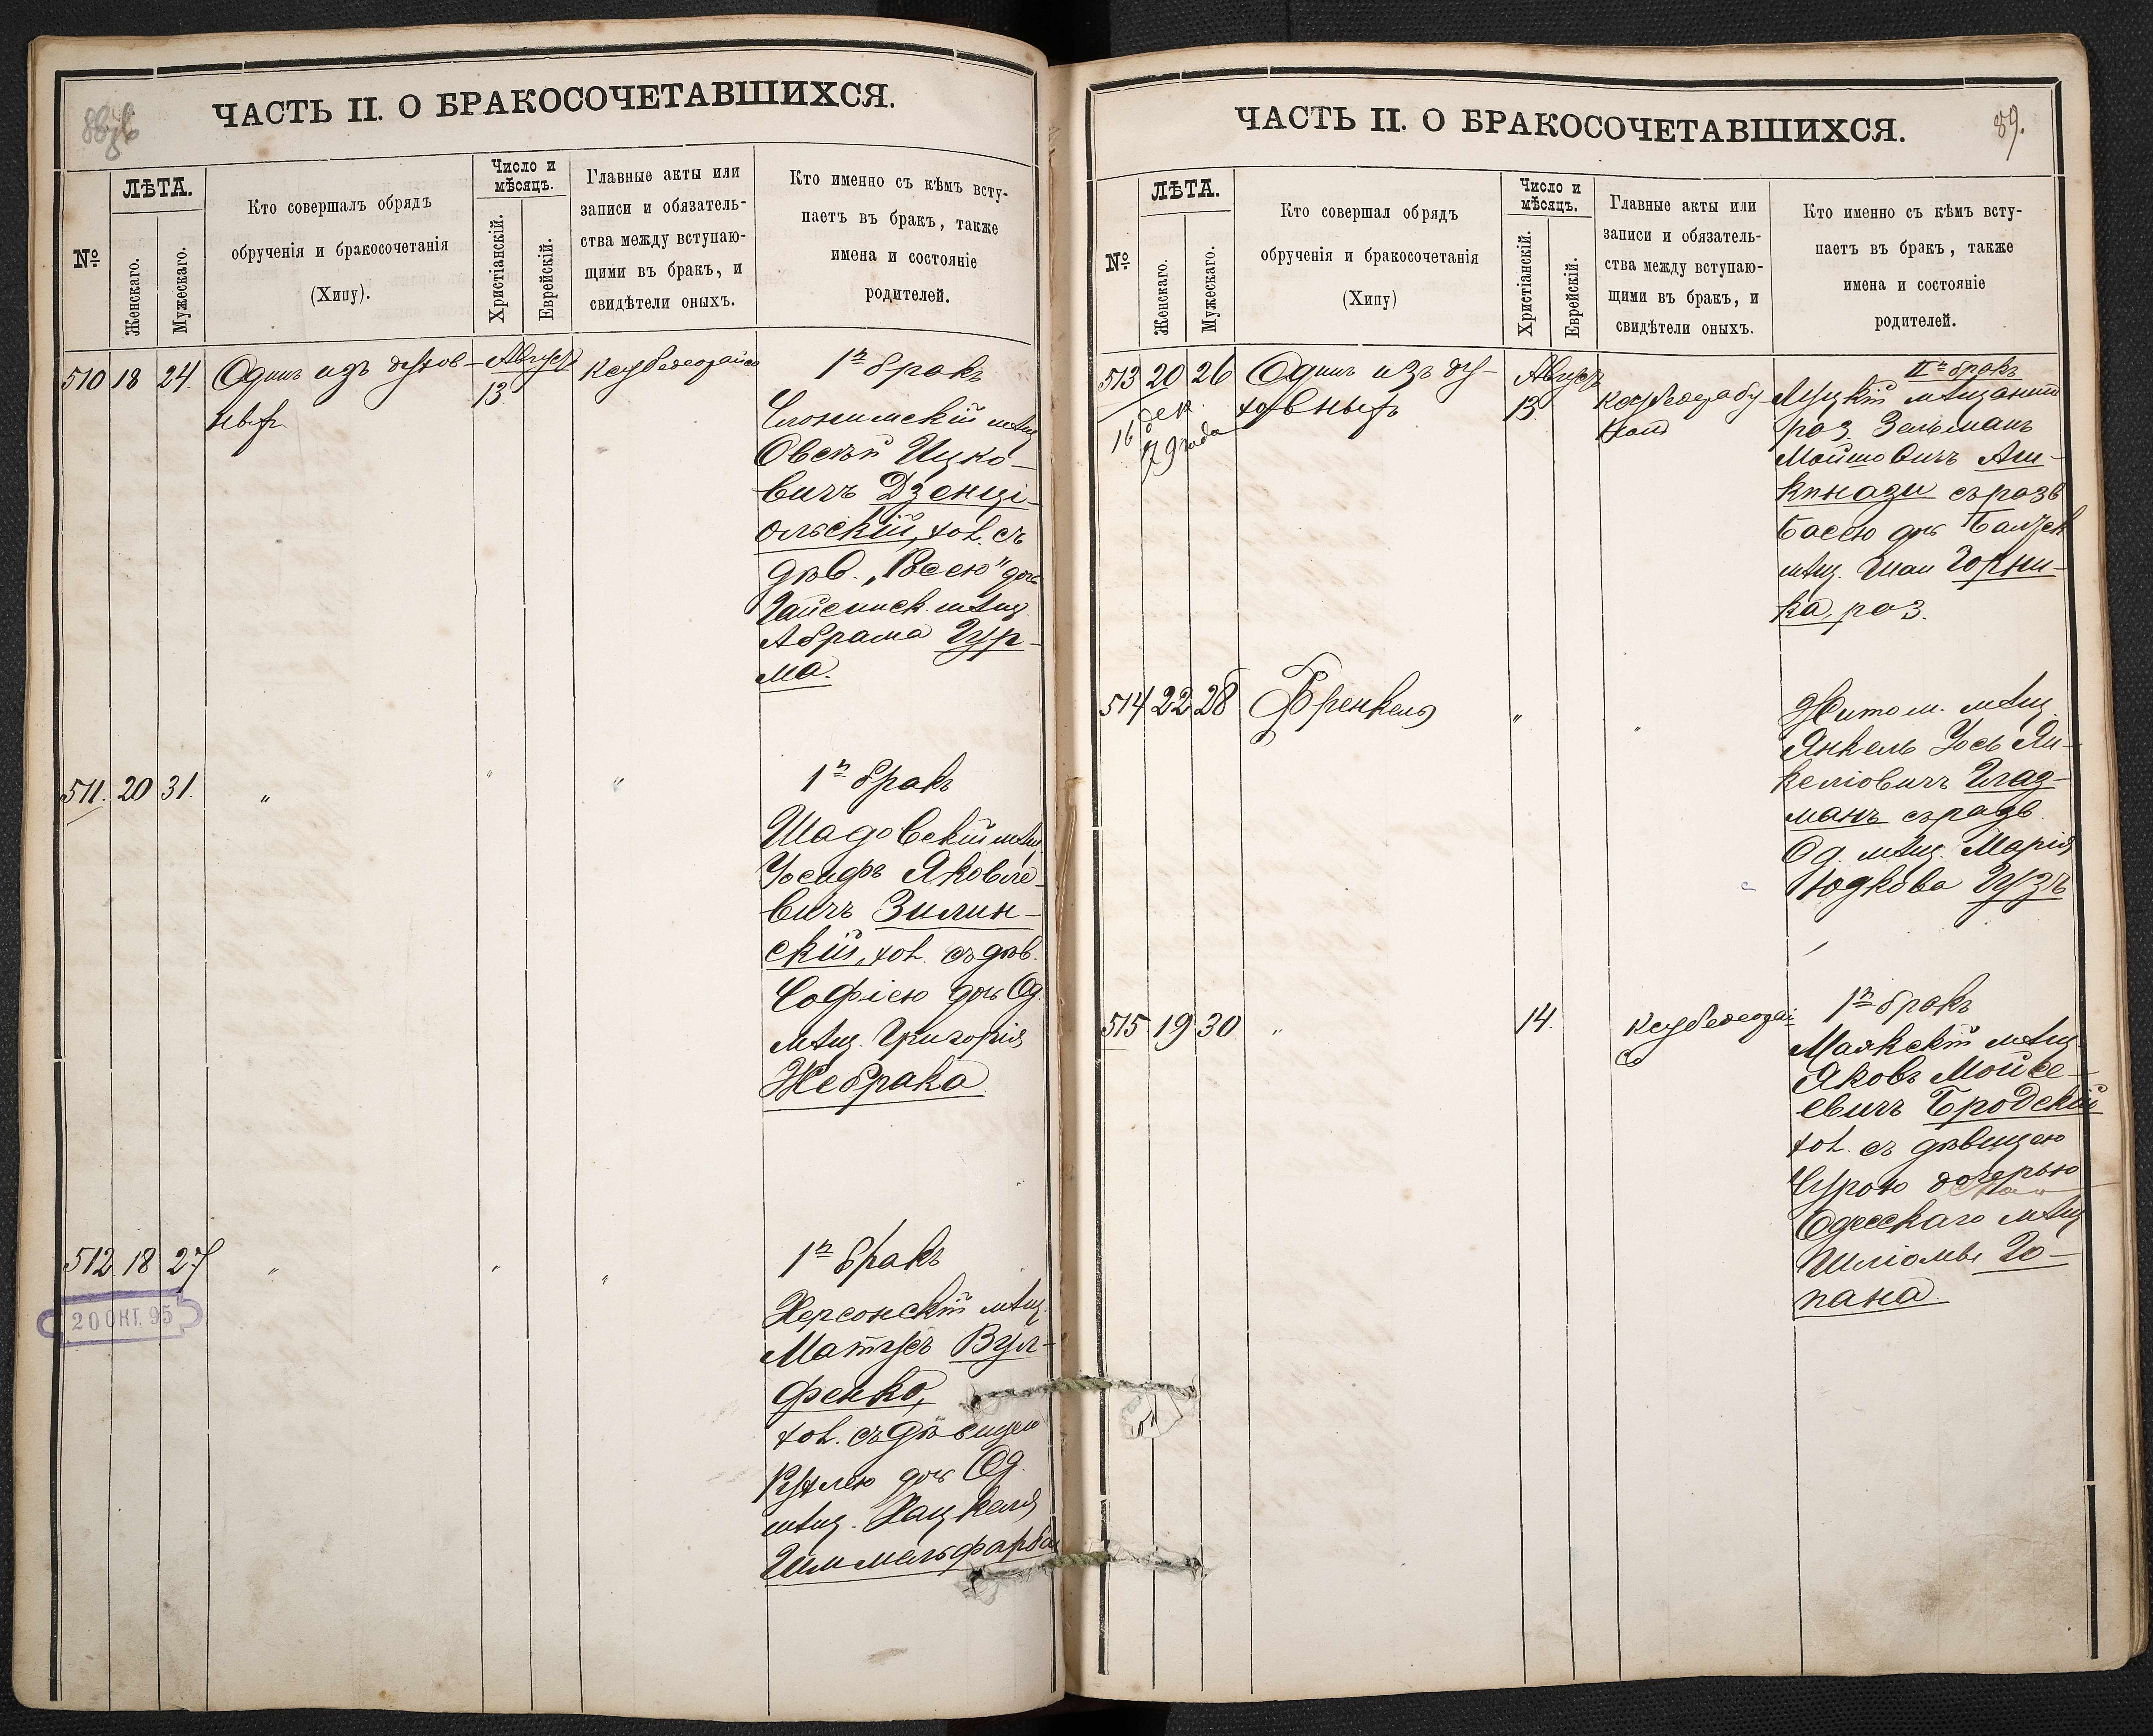 ЧАСТЬ II. О БРАКОСОЧЕТАВШИХСЯ.
№
ЛѢТА.
Женскаго.
Мужескаго.
Кто совершалъ обрядъ
обрученія и бракосочетанія
(Хипу).
Число и
мѣсяцъ.
Христіанскій.
Еврейскій.
Главные акты или
записи и обязатель-
ства между вступаю-
щими въ бракъ, и
свидѣтели оныхъ.
Кто именно съ кѣмъ всту-
паетъ въ бракъ, также
имена и состояніе
родителей.
510 18 24. Одинъ изъ духов-
ныхъ
Августъ
13
1й бракъ
Слонимскій мѣщ.
Овсей Ицко-
вичъ Дзенці-
ольскій, хол. съ
дѣв. „Росею" дочь
Гайсинск. мѣщ.
Абрама Гур-
ма.
511. 20 31. " " "
1й бракъ
Шадовскій мѣщ.
Іосифъ Яковле-
вичъ Зилин-
скій, хол. съ дѣв.
Софіею дочь Од.
мѣщ. Григорія
Жебрака
512 18 27 " " "
20 ОКТ. 95
1й бракъ
Херсонскій мѣщ.
Матусъ Вул-
фенко,
хол. съ дѣвицею
Рухлею дочь Од.
мѣщ. Хацкеля
Гиммельфарба
ЧАСТЬ II. О БРАКОСОЧЕТАВШИХСЯ.
89.
№
ЛѢТА.
Женскаго.
Мужескаго.
Кто совершал обрядъ
обрученія и бракосочетанія
(Хипу)
Число и
мѣсяцъ.
Христіанскій.
Еврейскій.
Главные акты или
записи и обязатель-
ства между вступаю-
щими въ бракъ, и
свидѣтели оныхъ.
Кто именно съ кѣмъ всту-
паетъ въ бракъ, также
имена и состояніе
родителей.
513 20 26 Одинъ изъ ду-
ховныхъ
16 дек.
79 года
Августъ
13
IIй бракъ
Луцкій мѣщанинъ
раз. Зельманъ
Мойшовичъ Аш-
кинази съ разв
Басею дочь
мѣщ. Шаи Горни-
ка, раз.
514 22 28 Френкель " "
Житом. мѣщ.
Янкель Іось Ян-
келіовичъ Глаз-
манъ съ разв.
Од. мѣщ. Марія
Юдкова Гузъ
515 19 30 " 14.
1й бракъ
Маякскій мѣщ.
Яковъ Мойсе-
евичъ Бродскій
хол. съ дѣвицею
Сурою дочерью
Одесскаго мѣщ
Шліомы Го-
пана.